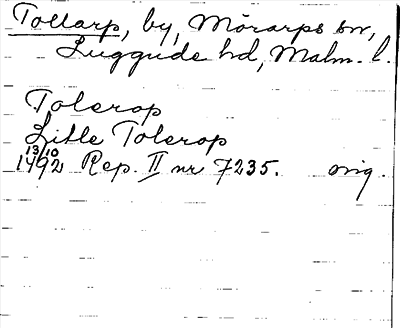 Tollarp, by, Mörarps sn,
Luggude hd, Malm. l.
Tolerop
Litle Tolerop
13/10
1492 Rep. II nr 7235. orig.